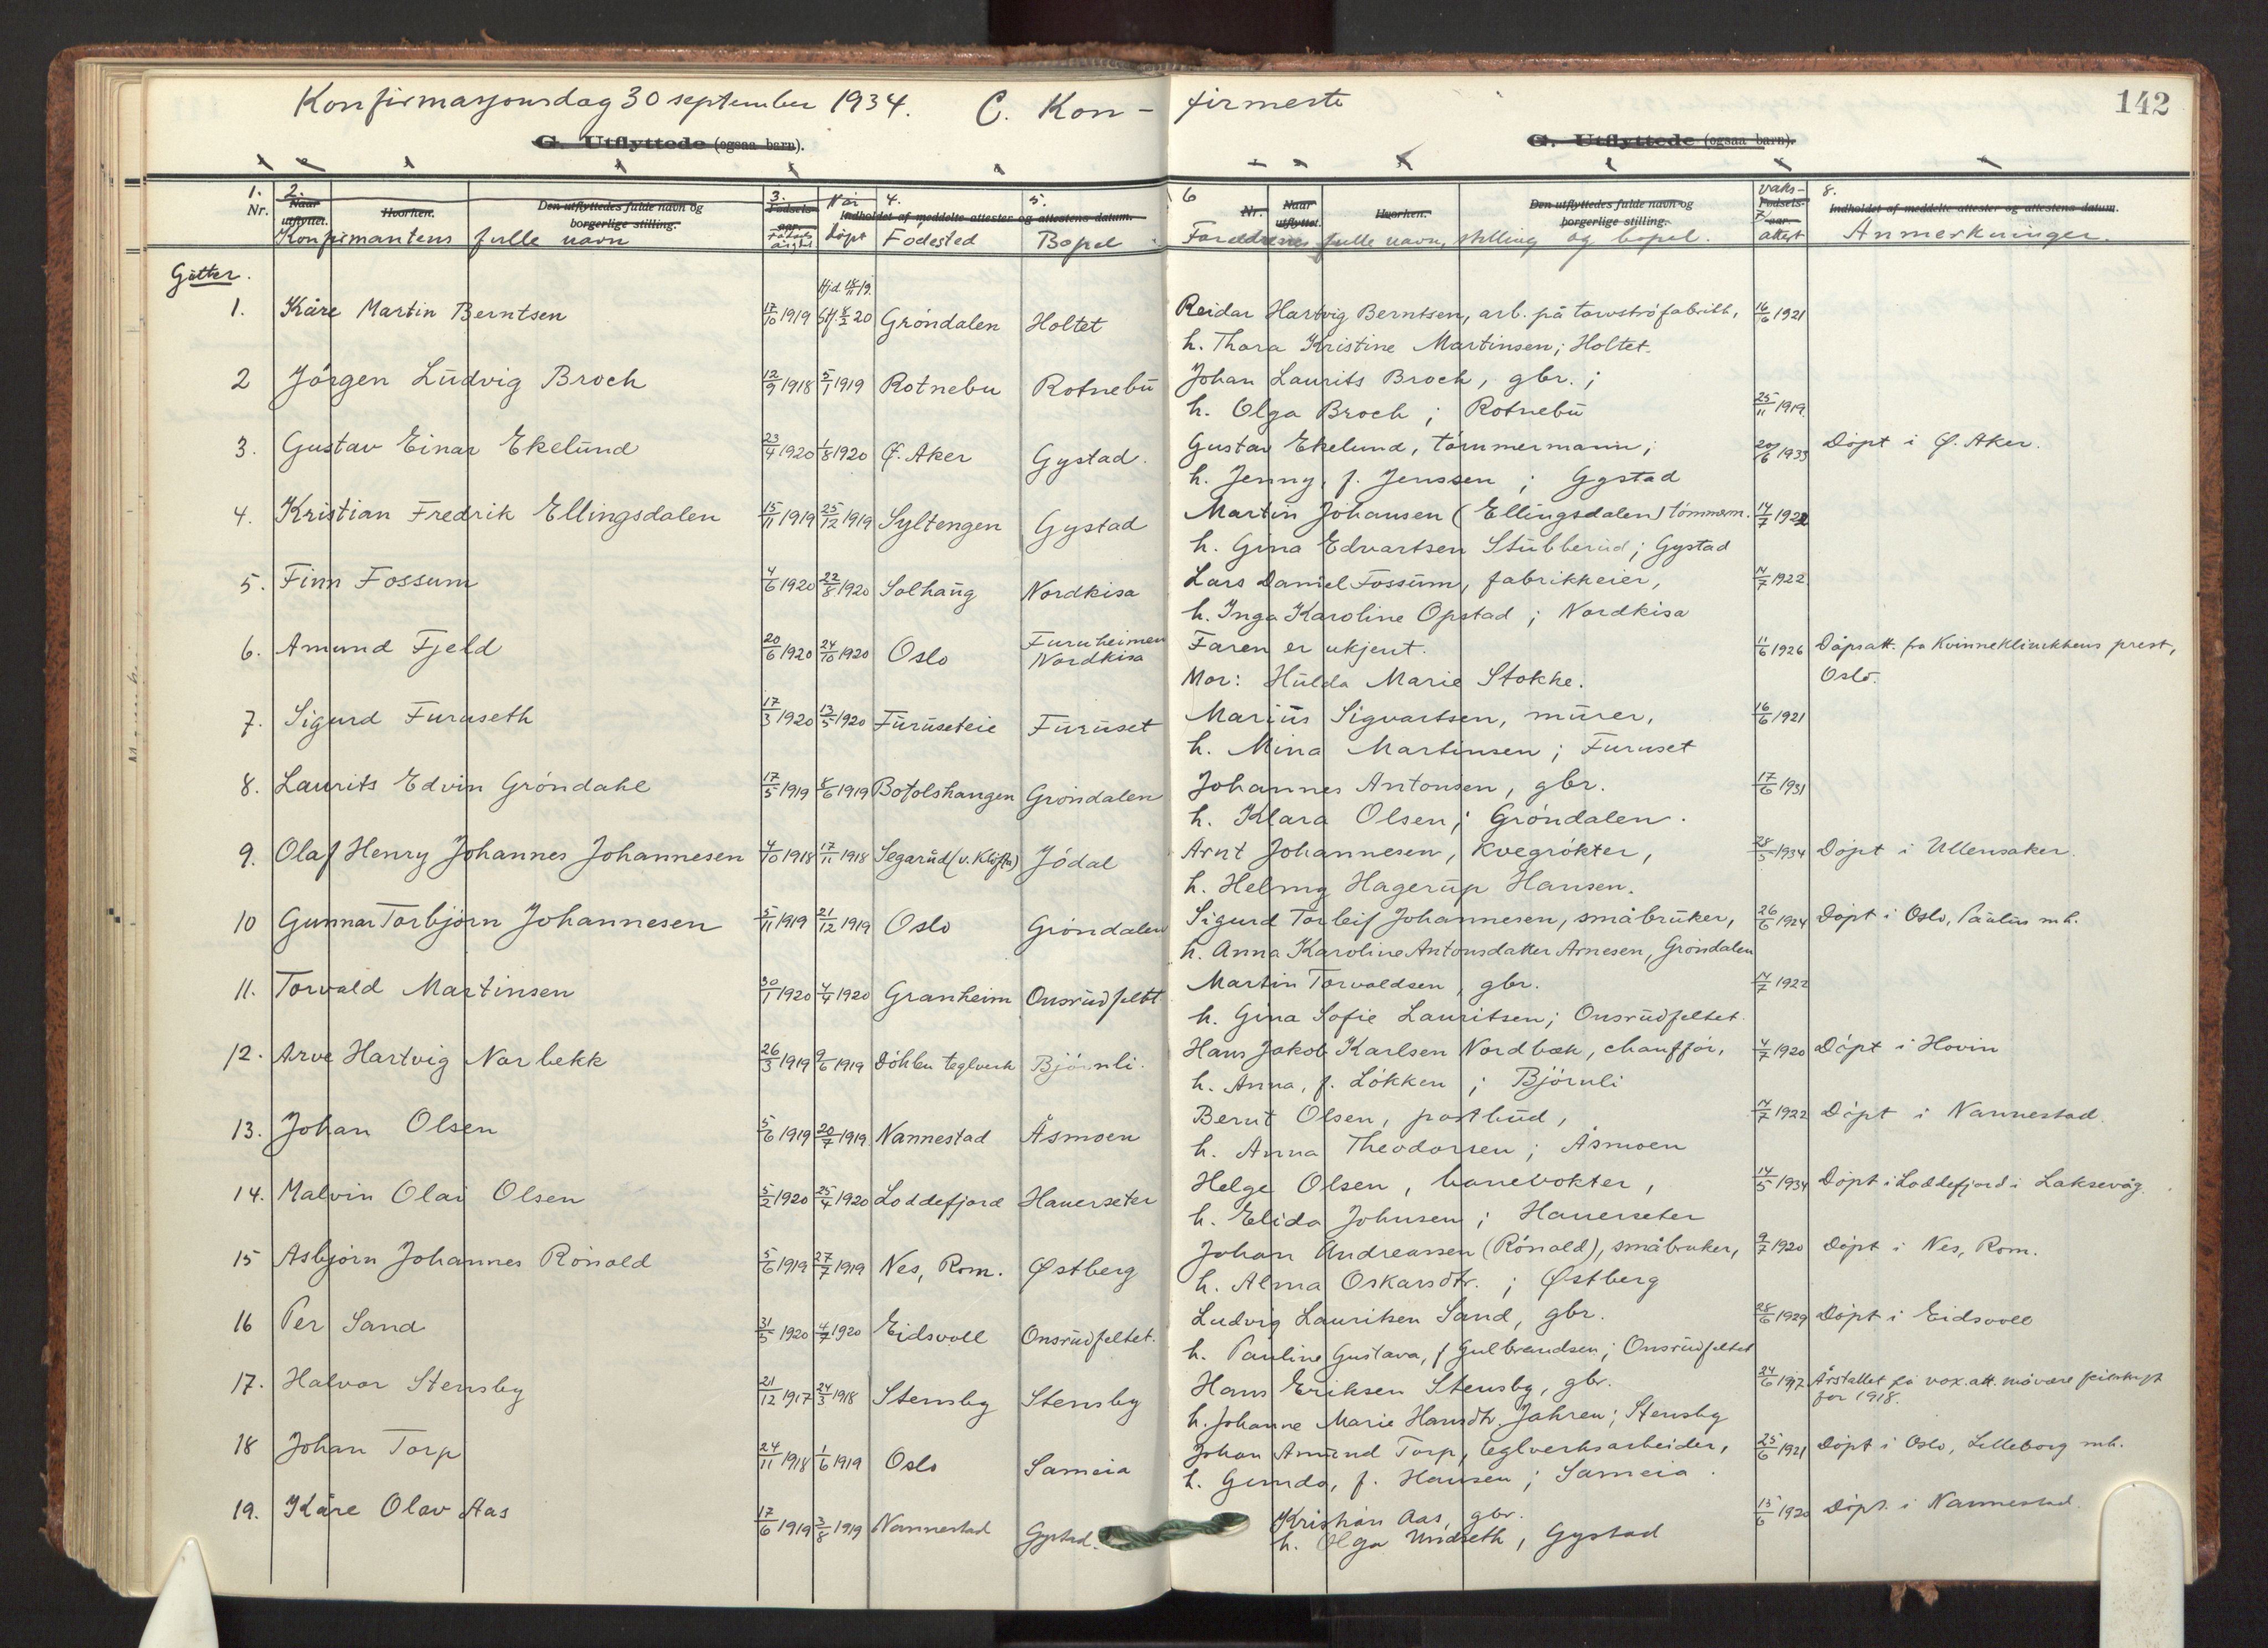 Konfirmasjonsdag 30 september 1934. C. Kon- firmerte
142
G. Utflyttede (ogsaa barn). G. Utflyttede (ogsaa barn).
1. Nr. 2. Naar utflyttet. Hvorhen. Den utflyttedes fulde navn og borgerlige stilling. 3. Fødsels- aar. Når døpt 4. Indholdet af meddelte attester og attestens datum. 5.
Konfirmantens fulle navn Fødsels Fødested Bopel
6 Nr. Naar utflyttet. Hvorhen. Den utflyttedes fulde navn og borgerlige stilling. Vaks- Fødsels- aar. 7 attest 8. Indholdet af meddelte attester og attestens datum.
Foreldrenes fulle navn, stilling og bopel. Anmerkninger.
Gutter.
1. Kåre Martin Berntsen 17/10 1919 Hjd 18/11 19. Stf. 8/2 20 Gröndalen Holtet Reidar Hartvig Berntsen, arb. på torvströfabrikk, 16/6 1921
h. Thora Kristine Martinsen; Holtet.
2 Jörgen Ludvig Broch 12/9 1918 5/1 1919 Rotnebu Rotnebu Johan Laurits Broch, gbr.;
h. Olga Broch; Rotnebu 25/11 1919.
3. Gustav Einar Ekelund 23/4 1920 1/8 1920 Ø. Aker Gystad. Gustav Ekelund, tömmermann; 20/6 1933 Döpt i Ø. Aker.
h. Jenny, f. Jenssen; Gystad
4. Kristian Fredrik Ellingsdalen 15/11 1919 25/12 1919 Syltengen Gystad Martin Johansen (Ellingsdalen) tömmerm. 14/7 1922
h. Gina Edvartsen Stubberud; Gystad
5. Finn Fossum 4/6 1920 22/8 1920 Solhaug Nordkisa Lars Daniel Fossum, fabrikkeier, 14/7 1922
h. Inga Karoline Opstad; Nordkisa
6. Amund Fjeld 20/6 1920 24/10 1920 Oslo Furuheimen Nordkisa Faren er ukjent. 11/6 1926 Döpsatt. fra Kvinneklinikkens prest,
Mor: Hulda Marie Stokke. Oslo.
7. Sigurd Furuseth 17/3 1920 13/5 1920 Furuseteie Furuset Marius Sigvartsen, murer, 16/6 1921
h. Mina Martinsen; Furuset
8. Laurits Edvin Gröndahl 17/5 1919 8/6 1919 Botolshaugen Gröndalen Johannes Antonsen, gbr. 17/6 1931
h. Klara Olsen; Gröndalen.
9. Olaf Henry Johannes Johannesen 4/10 1918 17/11 1918 Segarud (v. Klöfta) Jödal Arnt Johannesen, kvegrökter, 28/5 1934 Döpt i Ullensaker.
h. Helmy Hagerup Hansen.
10 Gunnar Torbjörn Johannesen 5/11 1919 21/12 1919 Oslo Gröndalen Sigurd Torleif Johannesen, småbruker, 26/6 1924 Döpt i Oslo, Paulus mh.
h. Anna Karoline Antonsdatter Arnesen, Gröndalen
11. Torvald Martinsen 30/1 1920 4/4 1920 Granheim Onsrudfeltet Martin Torvaldsen, gbr. 14/7 1922
h. Gina Sofie Lauritsen; Onsrudfeltet.
12. Arve Hartvig Norbekk 26/3 1919 9/6 1919 Döhlen teglverk Björnli. Hans Jakob Karlsen Nordbæk, chaufför, 4/7 1920 Döpt i Hovin
h. Anna, f. Lökken; Björnli
13. Johan Olsen 5/6 1919 20/7 1919. Nannestad Åsmoen Bernt Olsen, postbud, 14/7 1922 Döpt i Nannestad.
h. Anna Theodorsen; Åsmoen
14. Malvin Olai Olsen 5/2 1920 25/4 1920 Loddefjord Hauerseter Helge Olsen, banevokter, 14/5 1934 Döpt i Loddefjord i Laksevåg.
h. Elida Johnsen; Hauerseter
15 Asbjörn Johannes Rönold 5/6 1919 27/7 1919 Nes, Rom. Østberg Johan Andreassen (Rönold), småbruker, 9/7 1920 Döpt i Nes, Rom.
h. Alma Oskarsdtr.; Østberg
16 Per Sand 31/5 1920 4/7 1920 Eidsvoll Onsrudfeltet. Ludvig Lauritsen Sand, gbr. 28/6 1929 Döpt i Eidsvoll
h. Pauline Gustava, f Gulbrandsen; Onsrudfeltet
17. Halvor Stensby 21/12 1917 24/3 1918 Stensby Stensby Hans Eriksen Stensby, gbr. 24/6 1917 Årstallet på vax.att. må være feilskrift
h. Johanne Marie Hansdtr. Jahren; Stensby for 1918.
18 Johan Torp 24/11 1918 1/6 1919 Oslo Sameia Johan Amund Torp, teglverksarbeider, 25/6 1921 Döpt i Oslo, Lilleborg mh.
h. Gunda, f. Hansen; Sameia.
19. Kåre Olav Aas 17/6 1919 3/8 1919 Nannestad Gystad. Kristian Aas, gbr. 15/6 1920 Döpt. i Nannestad.
h. Olga Undseth, Gystad